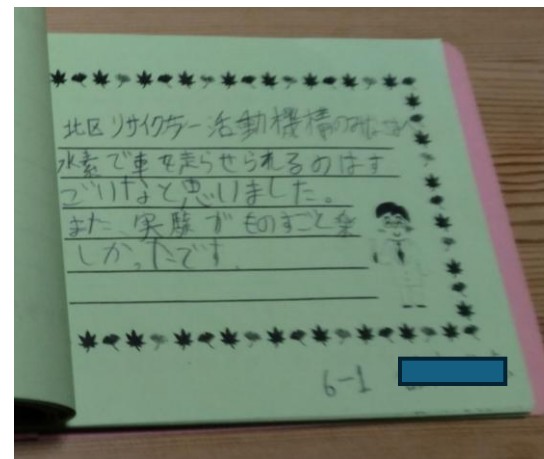 北区リサイクラー活動機構のみなさんへ
水素で車を走らせられるのはす
ごいなと思いました。
また、実験がものすごと楽
しかったです。
6-1